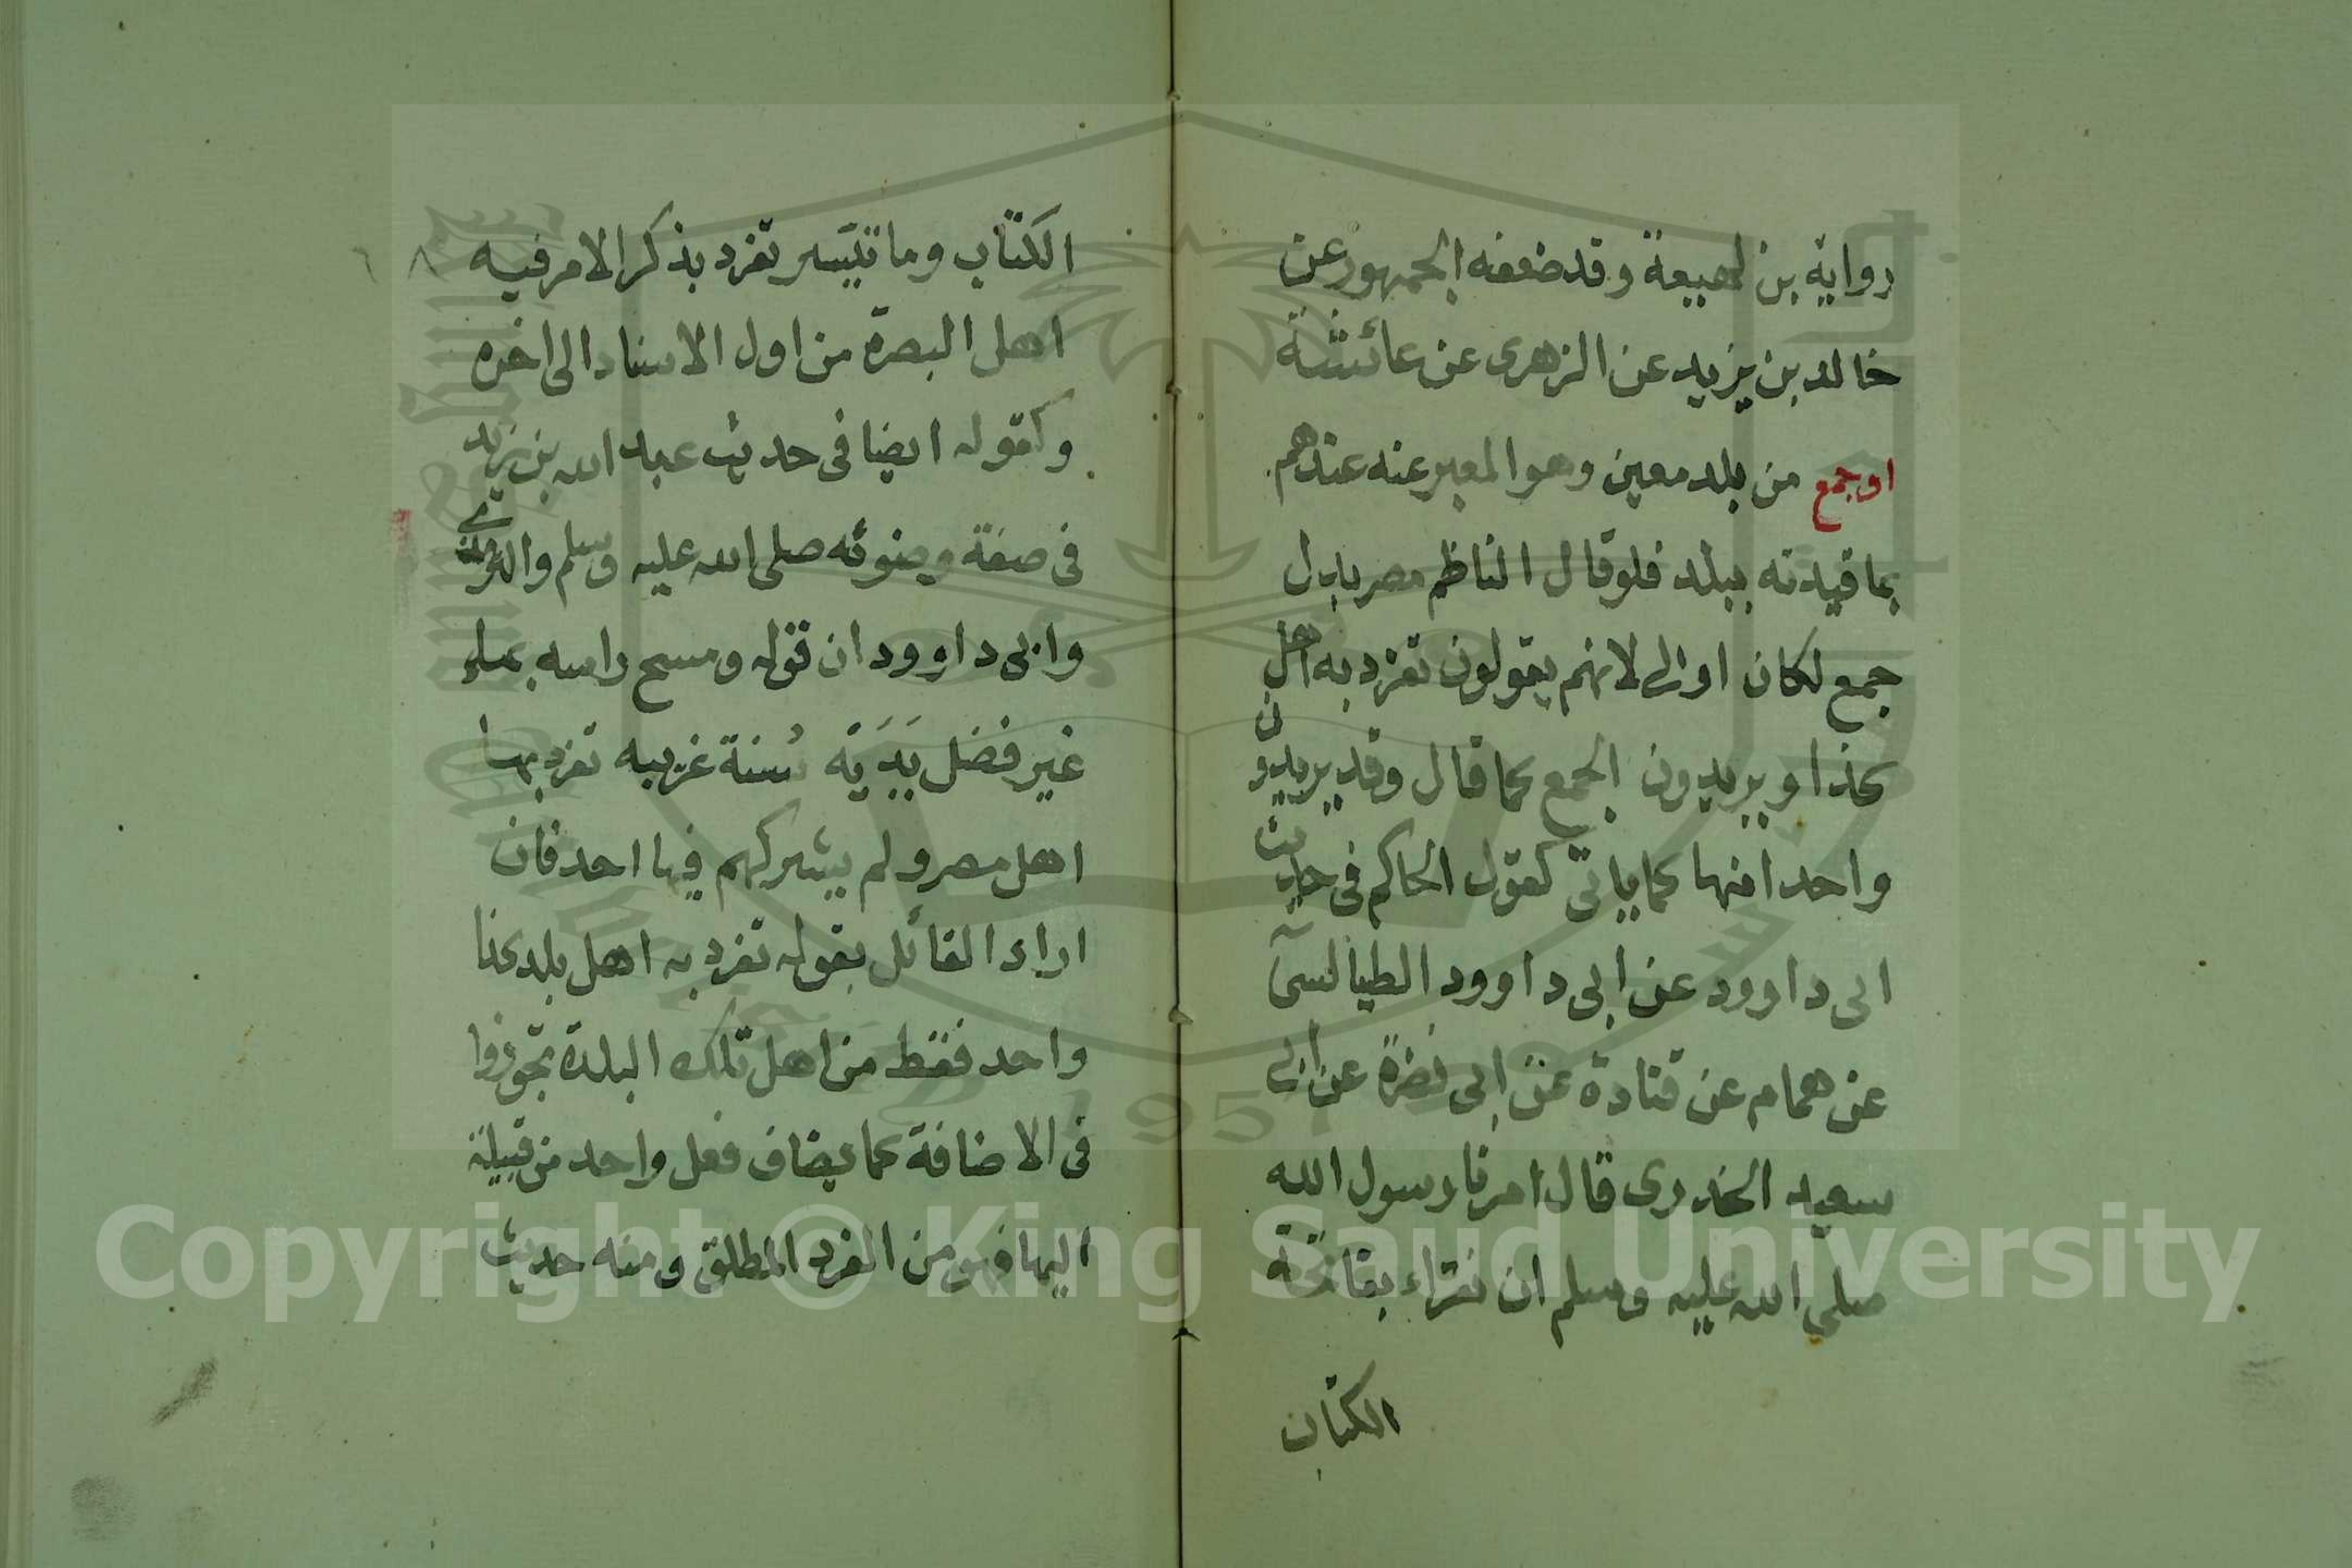 رواية بن لهيعة وقد ضعفه الجمهور عن
خالد بن يزيد عن الزهرى عن عائشة
او جمع من بلد معين وهو المعبر عنه عندهم
بما قيدته ببلد فلو قال الناظم مصر بابدل
جمع لكان اولى لانهم يقولون تفرد به اهل
كذا ويريدون الجمع كما قال وقد يريدون
واحدا منها كما ياتى كقول الحاكم فى حديث
ابى داوود عن ابى داوود الطيالسى
عن همام عن قتادة عن ابى نضرة عن ابى
سعيد الخدرى قال امرنا رسول الله
صلى الله عليه وسلم ان نقراء بفاتحة
الكتاب
الكتاب وما تيسر تفرد بذكر الامر فيه
اهل البصرة من اول الاسناد الى اخره
وكقوله ايضا فى حديث عبد الله بن زيد
فى صفة وضوئه صلى الله عليه وسلم والترمذى
وابى داوود ان قوله ومسح راسه بماء
غير فضل يديه سنة غريبه تفرد بها
اهل مصر ولم يشركهم فيها احد فان
اراد القائل بقوله تفرد به اهل بلد كذا
واحد فقط من اهل تلك البلدة تجوزوا
فى الاضافة كما يضاف فعل واحد من قبيلة
اليها فهو من الفرد المطلق ومنه حديث
٨
Copyright © King Saud University
1957